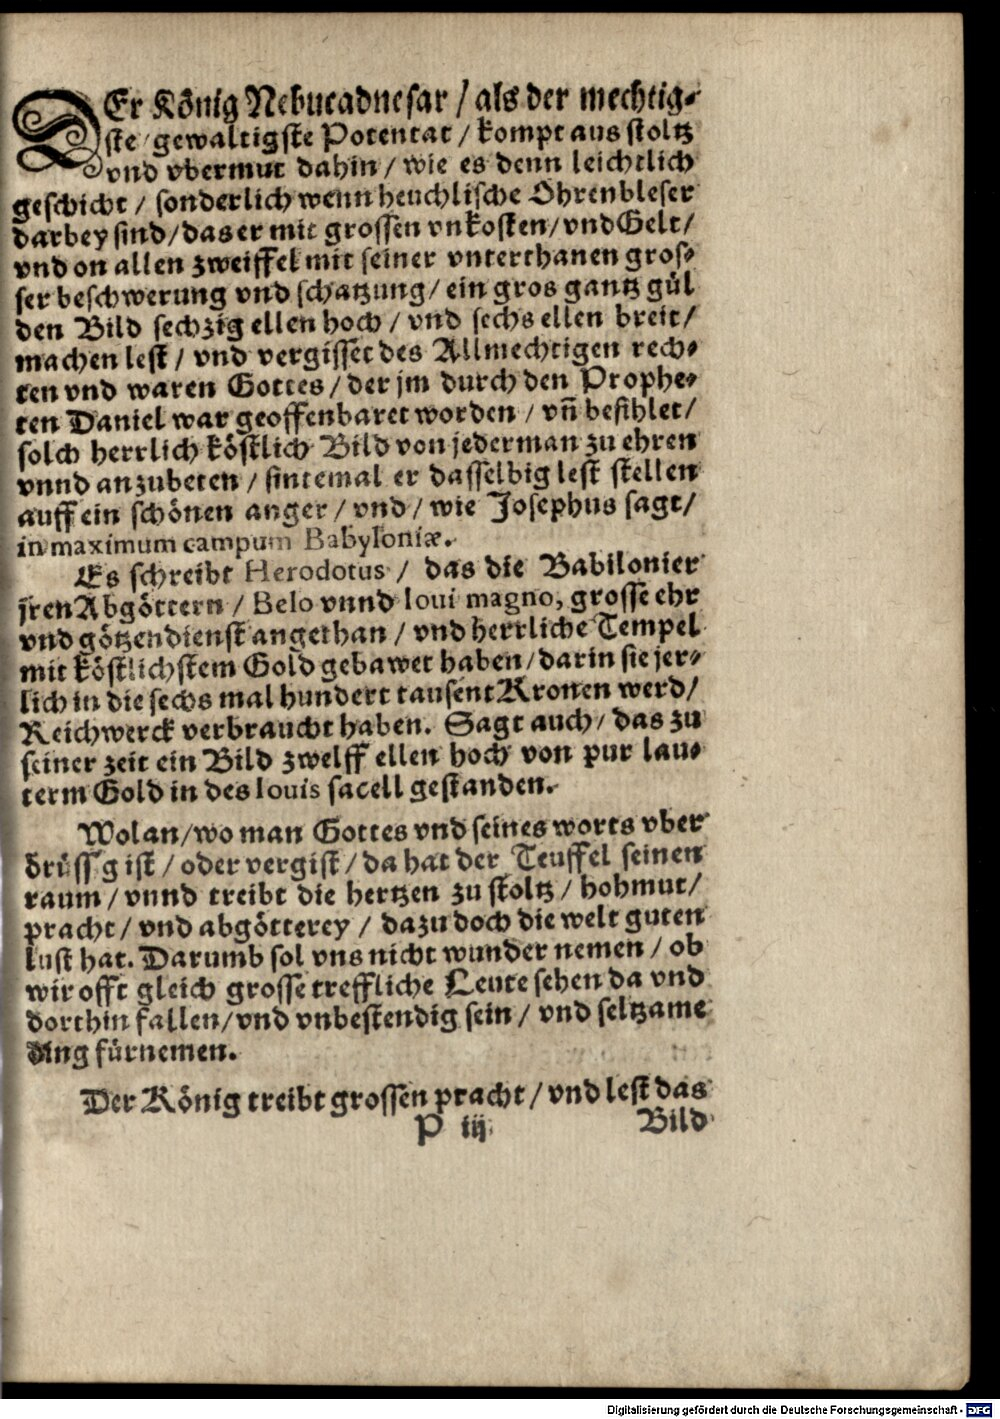 DEr König Nebucadnesar / als der mechtig⸗
ste / gewaltigste Potentat / kompt aus stoltz
vnd vbermut dahin / wie es denn leichtlich
geschicht / sonderlich wenn heuchlische Ohrenbleser
darbey sind / das er mit grossen vnkosten / vnd Gelt /
vnd on allen zweiffel mit seiner vnterthanen gros⸗
ser beschwerung vnd schatzung / ein gros gantz gül
den Bild sechzig ellen hoch / vnd sechs ellen breit /
machen lest / vnd vergisset des Allmechtigen rech⸗
ten vnd waren Gottes / der jm durch den Prophe⸗
ten Daniel war geoffenbaret worden / vñ befihlet /
solch herrlich köstlich Bild von jederman zu ehren
vnnd anzubeten / sintemal er dasselbig lest stellen
auff ein schönen anger / vnd / wie Josephus sagt /
in maximum campum Babyloniæ.
Es schreibt Herodotus / das die Babilonier
jren Abgöttern / Belo vnnd Ioui magno, grosse ehr
vnd götzendienst angethan / vnd herrliche Tempel
mit köstlichstem Gold gebawet haben / darin sie jer⸗
lich in die sechs mal hundert tausent Kronen werd /
Reichwerck verbraucht haben. Sagt auch / das zu
seiner zeit ein Bild zwelff ellen hoch von pur lau⸗
term Gold in des Iouis sacell gestanden.
Wolan / wo man Gottes vnd seines worts vber
drüssig ist / oder vergist / da hat der Teuffel seinen
raum / vnnd treibt die hertzen zu stoltz / hohmut /
pracht / vnd abgötterey / dazu doch die welt guten
lust hat. Darumb sol vns nicht wunder nemen / ob
wir offt gleich grosse treffliche Leute sehen da vnd
dorthin fallen / vnd vnbestendig sein / vnd seltzame
ding fürnemen.
Der König treibt grossen pracht / vnd lest das
P iij
Bild
Digitalisierung gefördert durch die Deutsche Forschungsgemeinschaft - DFG